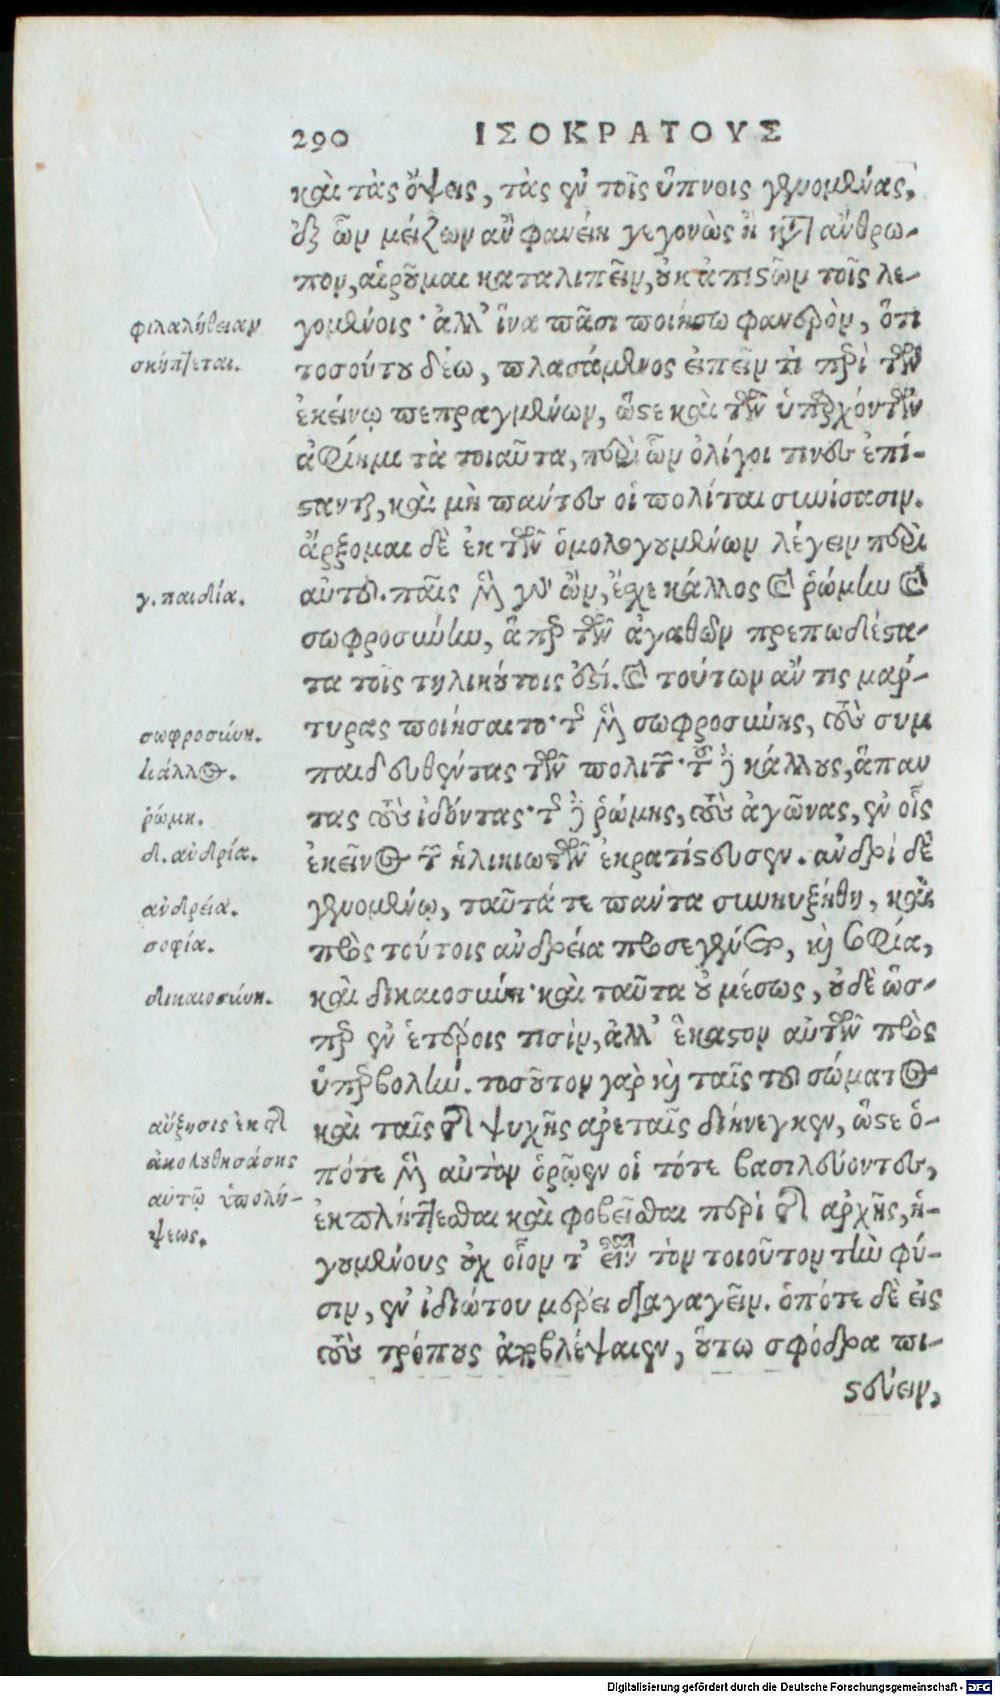 290 ΙΣΟΚΡΑΤΟΥΣ
καὶ τὰς ὄψεις, τὰς ἐν τοῖς ὕπνοις γενομένας,
ἐξ ὧν μείζων ἂν φανείη γεγονὼς ἢ κατ' ἄνθρω-
πον, αἱροῦμαι καταλιπεῖν, οὐκ ἀπιστῶν τοῖς λε-
γομένοις· ἀλλ' ἵνα πᾶσι ποιήσω φανερὸν, ὅτι
τοσούτου δέω, πλασάμενος εἰπεῖν τὶ περὶ τῶν
ἐκείνῳ πεπραγμένων, ὥστε καὶ τῶν ὑπαρχόντων
ἀφίημι τὰ τοιαῦτα, περὶ ὧν ὀλίγοι τινες ἐπί-
στανται, καὶ μὴ πάντες οἱ πολῖται συνίσασιν.
ἄρξομαι δὲ ἐκ τῶν ὁμολογουμένων λέγειν περὶ
αὐτοῦ. παῖς μὲν γὰρ ὢν, ἔσχε κάλλος καὶ ῥώμην καὶ
σωφροσύνην, ἅπερ τῶν ἀγαθῶν πρεπωδέστα-
τα τοῖς τηλικούτοις ἐστί. καὶ τούτων ἄν τις μάρ-
τυρας ποιήσαιτο· τῆς μὲν σωφροσύνης, τοὺς συμ
παιδευθέντας τῶν πολιτῶν· τοῦ δὲ κάλλους, ἅπαν
τας τοὺς ἰδόντας· τῆς δὲ ῥώμης, τοὺς ἀγῶνας, ἐν οἷς
ἐκεῖνος τῶν ἡλικιωτῶν ἐκρατίστευσεν. ἀνδρὶ δὲ
γενομένῳ, ταῦτά τε πάντα συνηυξήθη, καὶ
πρὸς τούτοις ἀνδρεία προσεγένετο, καὶ σοφία,
καὶ δικαιοσύνη· καὶ ταῦτα οὐ μέσως, οὐδὲ ὥσ-
περ ἐν ἑτέροις τισὶν, ἀλλ' ἕκαστον αὐτῶν πρὸς
ὑπερβολήν. τοσοῦτον γὰρ καὶ ταῖς τοῦ σώματος
καὶ ταῖς τῆς ψυχῆς ἀρεταῖς διήνεγκεν, ὥστε ὁ-
πότε μὲν αὐτὸν ὁρῷεν οἱ τότε βασιλεύοντες,
ἐκπλήττεσθαι καὶ φοβεῖσθαι περὶ τῆς ἀρχῆς, ἡ-
γουμένους οὐχ οἷον τ' εἶναι τὸν τοιοῦτον τὴν φύ-
σιν, ἐν ἰδιώτου μέρει διαγαγεῖν. ὁπότε δὲ εἰς
τοὺς τρόπους ἀποβλέψαιεν, οὕτω σφόδρα πι-
στεύειν,
φιλαλήθειαν
σκήπτεται.
γ. παιδία.
σωφροσύνη.
κάλλος.
ῥώμη.
δ. ἀνδρία.
ἀνδρεία.
σοφία.
δικαιοσύνη.
αὔξησις ἐκ τῆς
ἀκολουθησάσης
αὐτῷ ὑπολή-
ψεως.
Digitalisierung gefördert durch die Deutsche Forschungsgemeinschaft · DFG